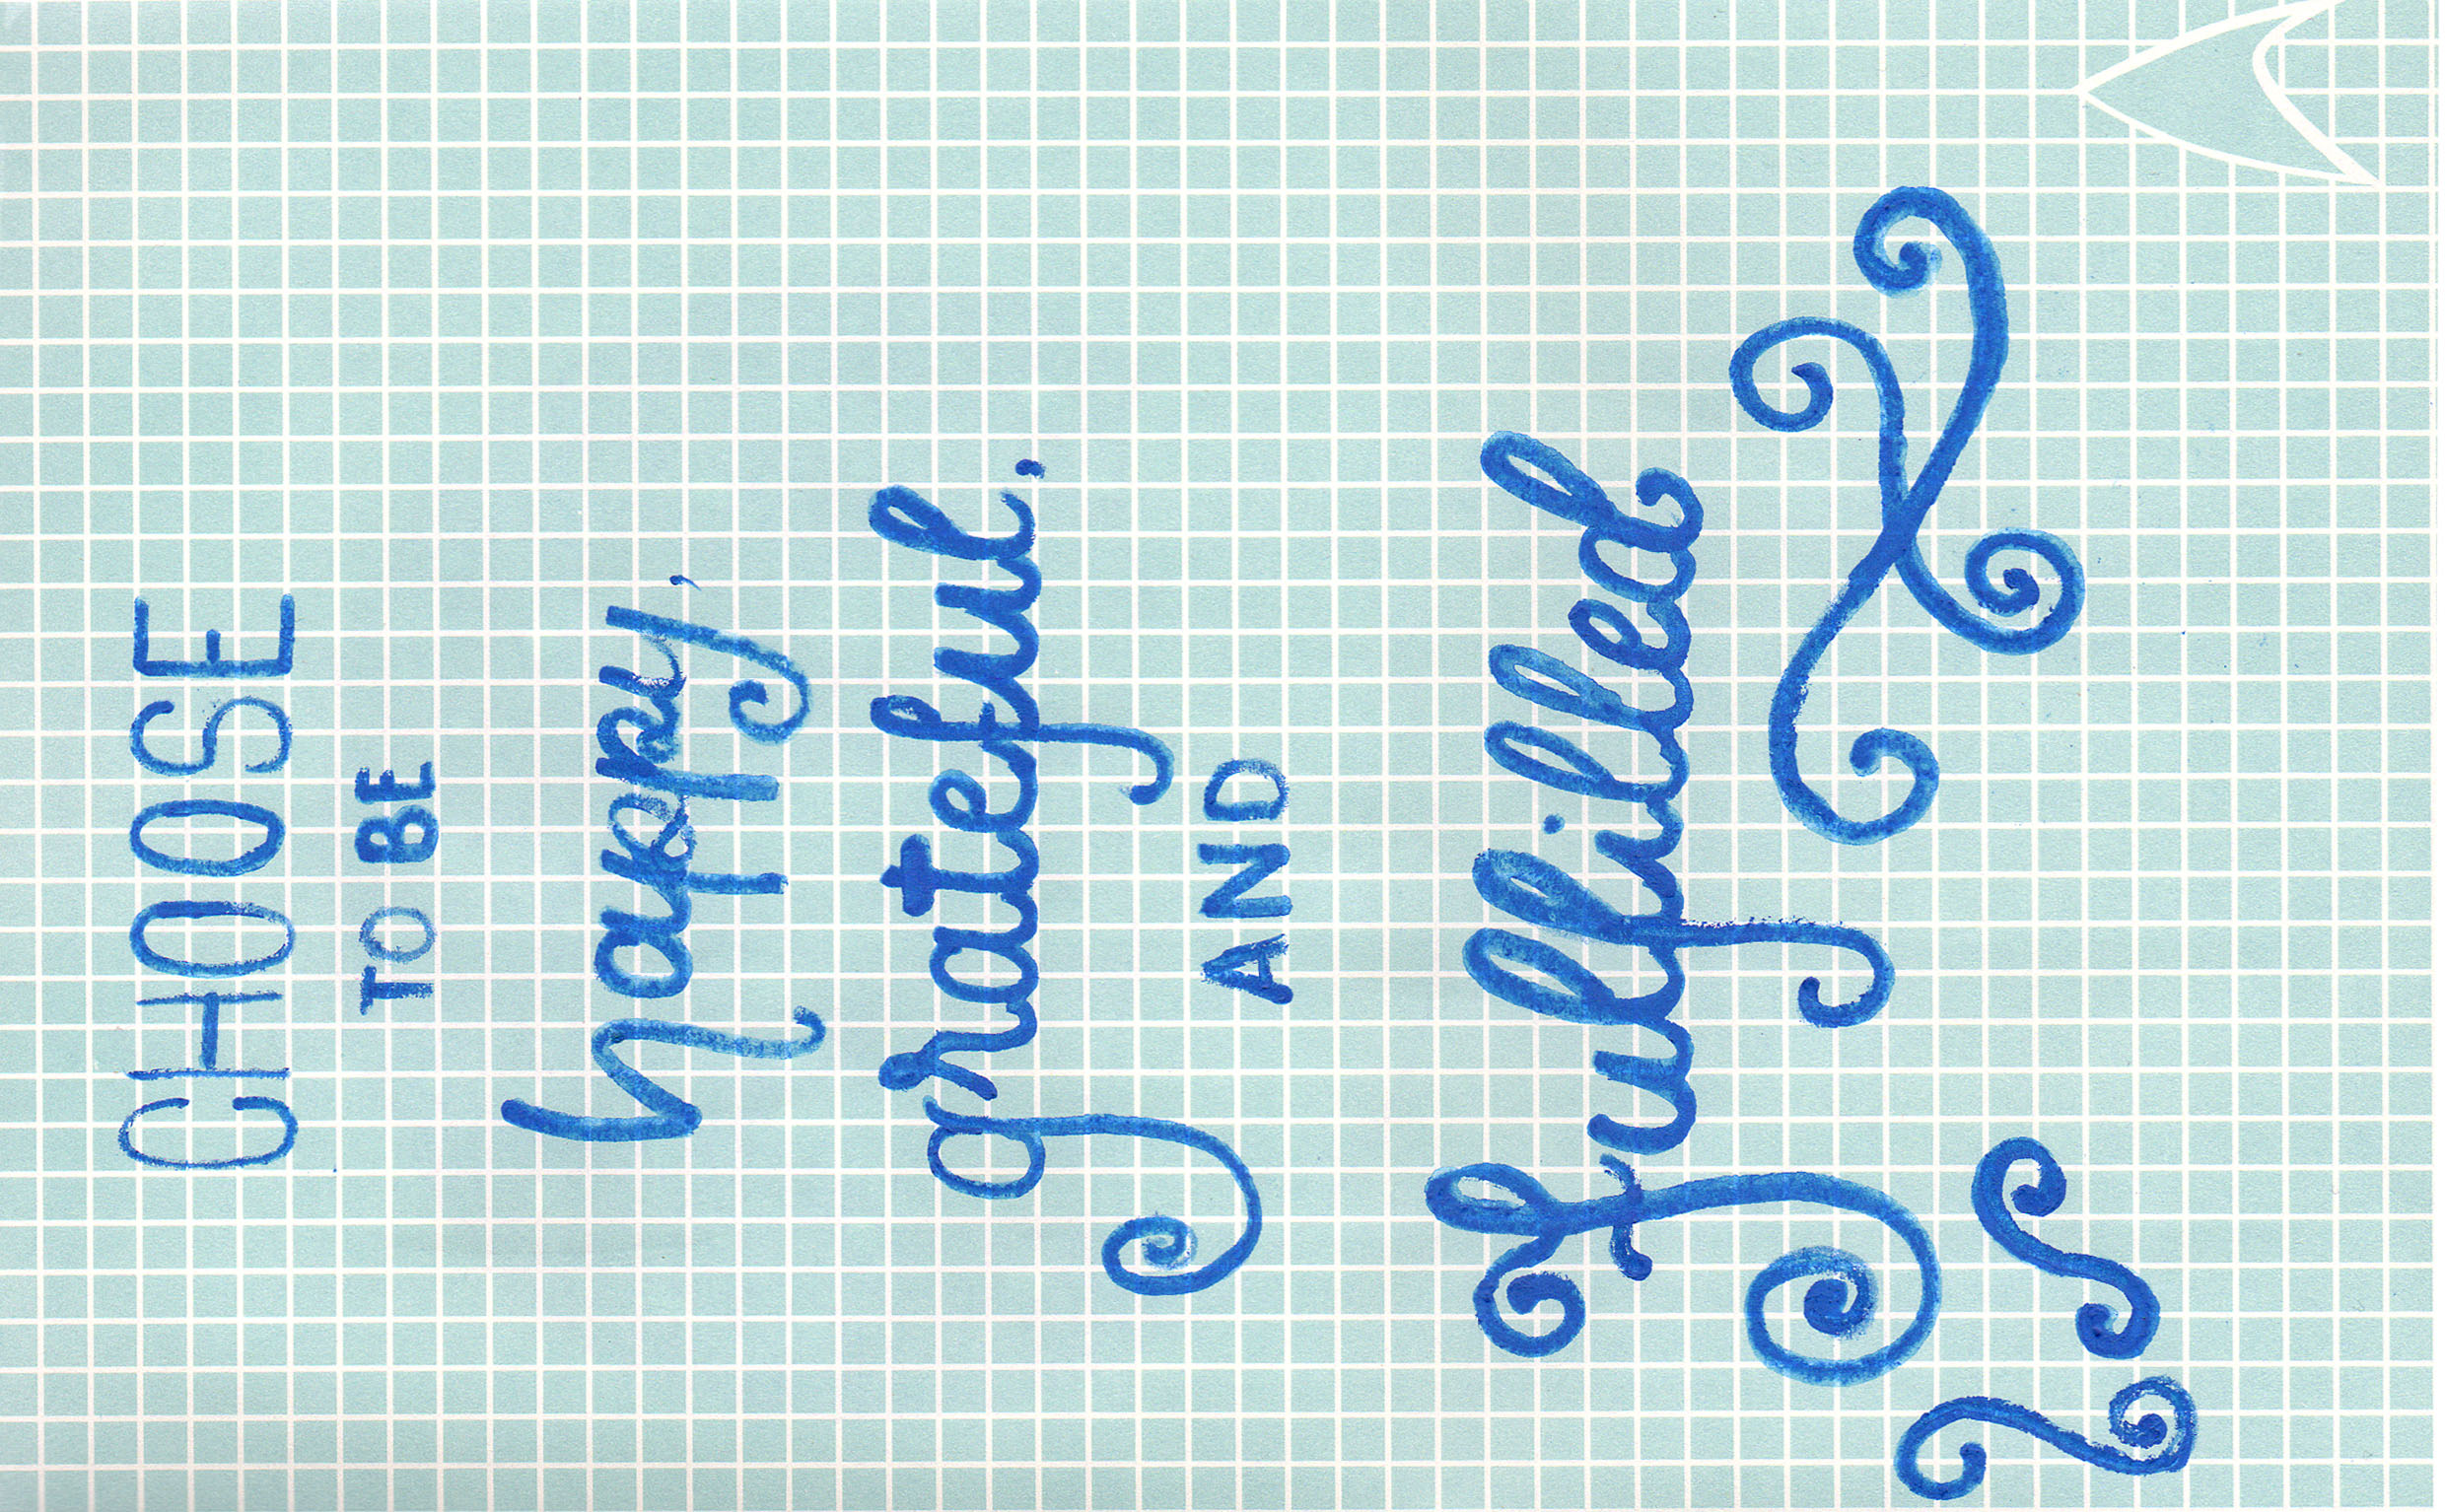 CHOOSE
TO BE
happy,
grateful,
AND
fulfilled